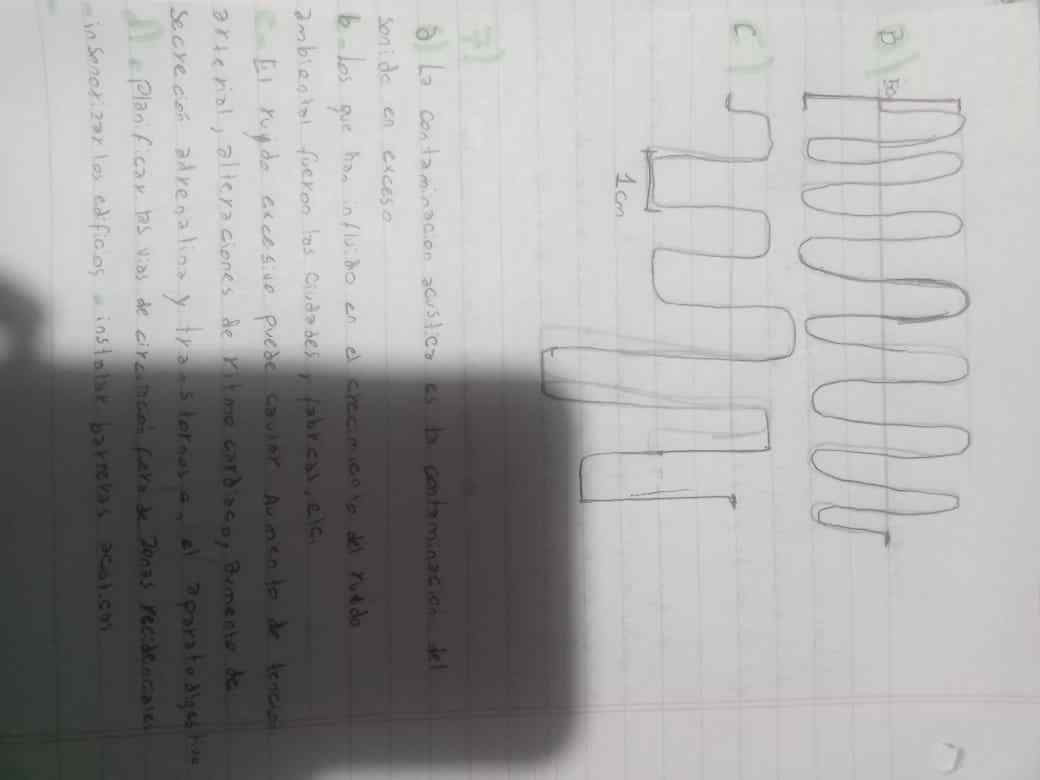 B)
50
C)
1cm
7)
a) La contaminación acustica es la contaminacion del
sonido en exceso
b. Los que han influido en el crecimiento del ruido
ambiental fueron las ciudades, fabricas, etc.
c. El ruydo excesivo puede causar Aumento de tencion
arterial, alteraciones de ritmo cardiaco, aumento de
Secreción adrenalina y transtornos en el aparato digestivo
d) Planificar las vias de circulacion fera de zonas recidenciales
insonorizar los edificos o instalar barreras acusticas